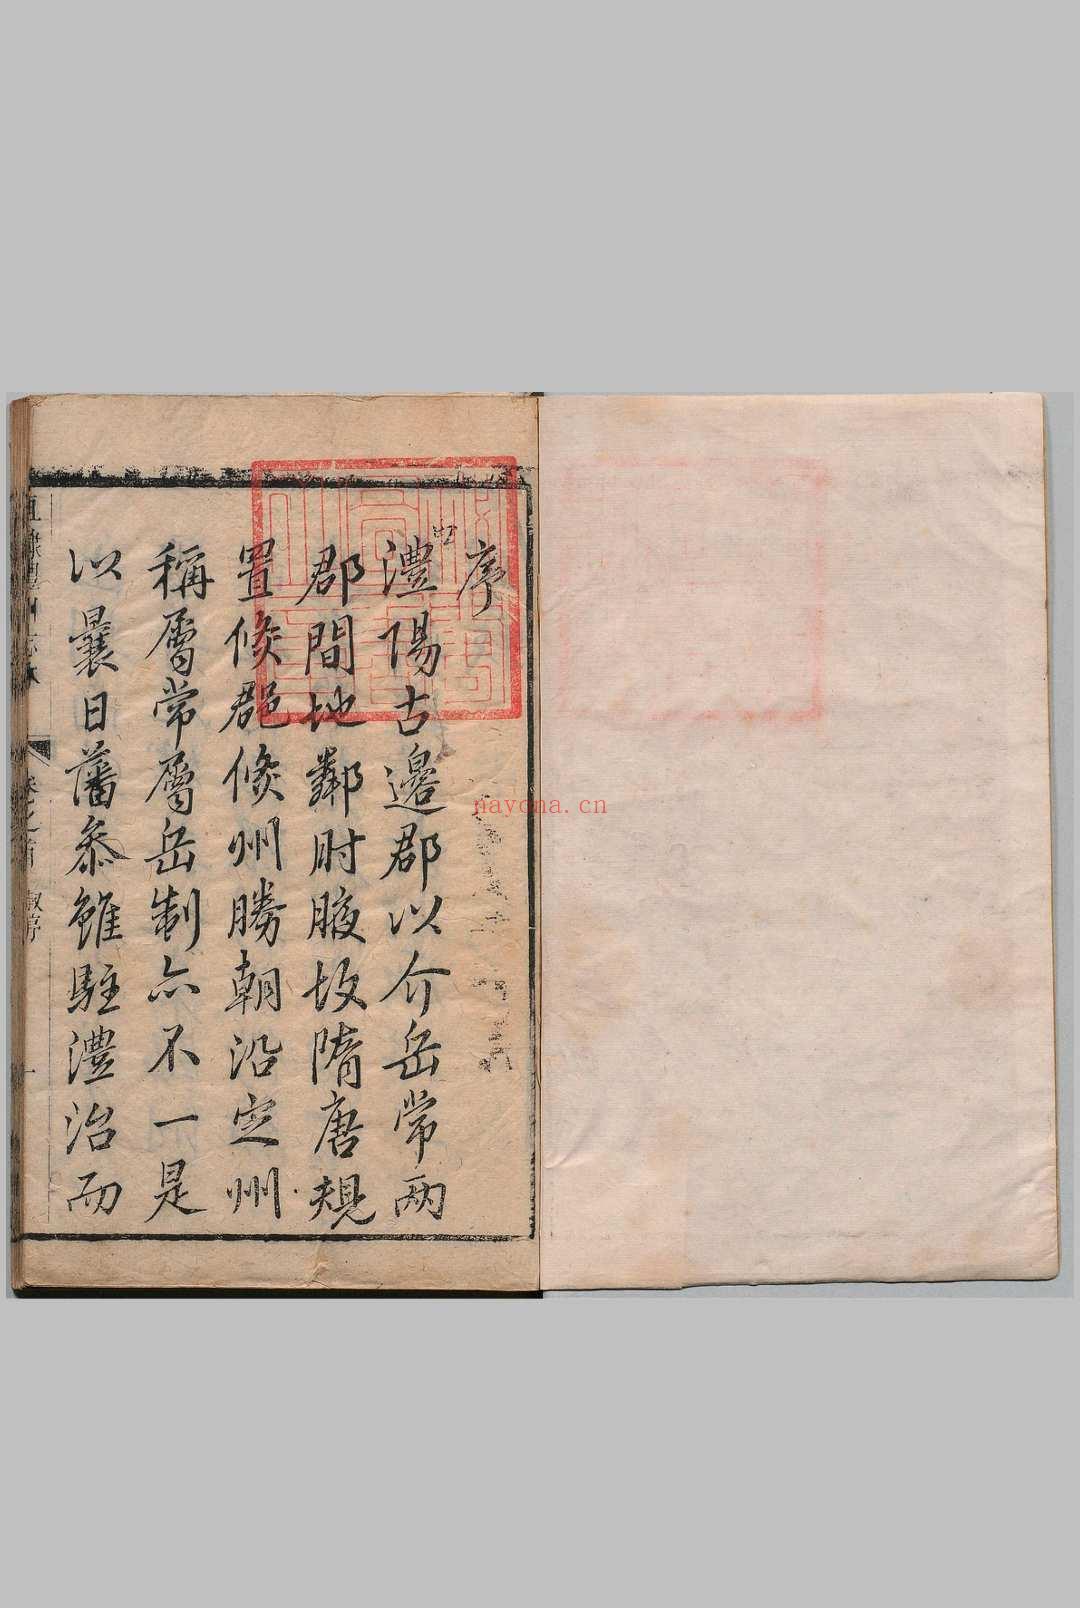 序
澧陽古邊郡以介岳常兩
郡間地鄰肘腋故隋唐規
置倐郡倐州勝朝沿定州
稱屬常屬岳制亦不一是
以曩日藩叅雖駐澧治而
直隸澧州志林
卷之首 敘序
一
nayona.cn